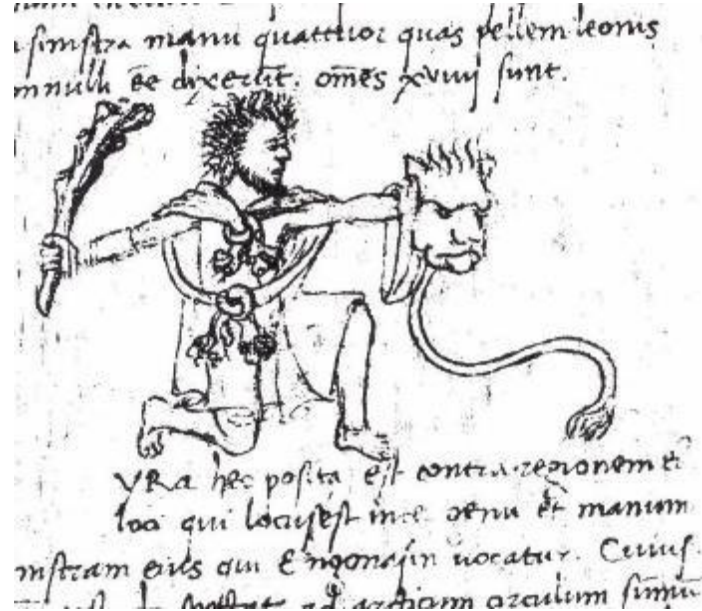 sinistra manu quattuor quas pellem leonis
nnulli ēē dixerūt. omēs xviiij sunt.
YRa hec posita est contra regionem ei
loci qui locus est inter genu et manum
nistram eius qui Engonasin uocatur. Cuius
ad circulum